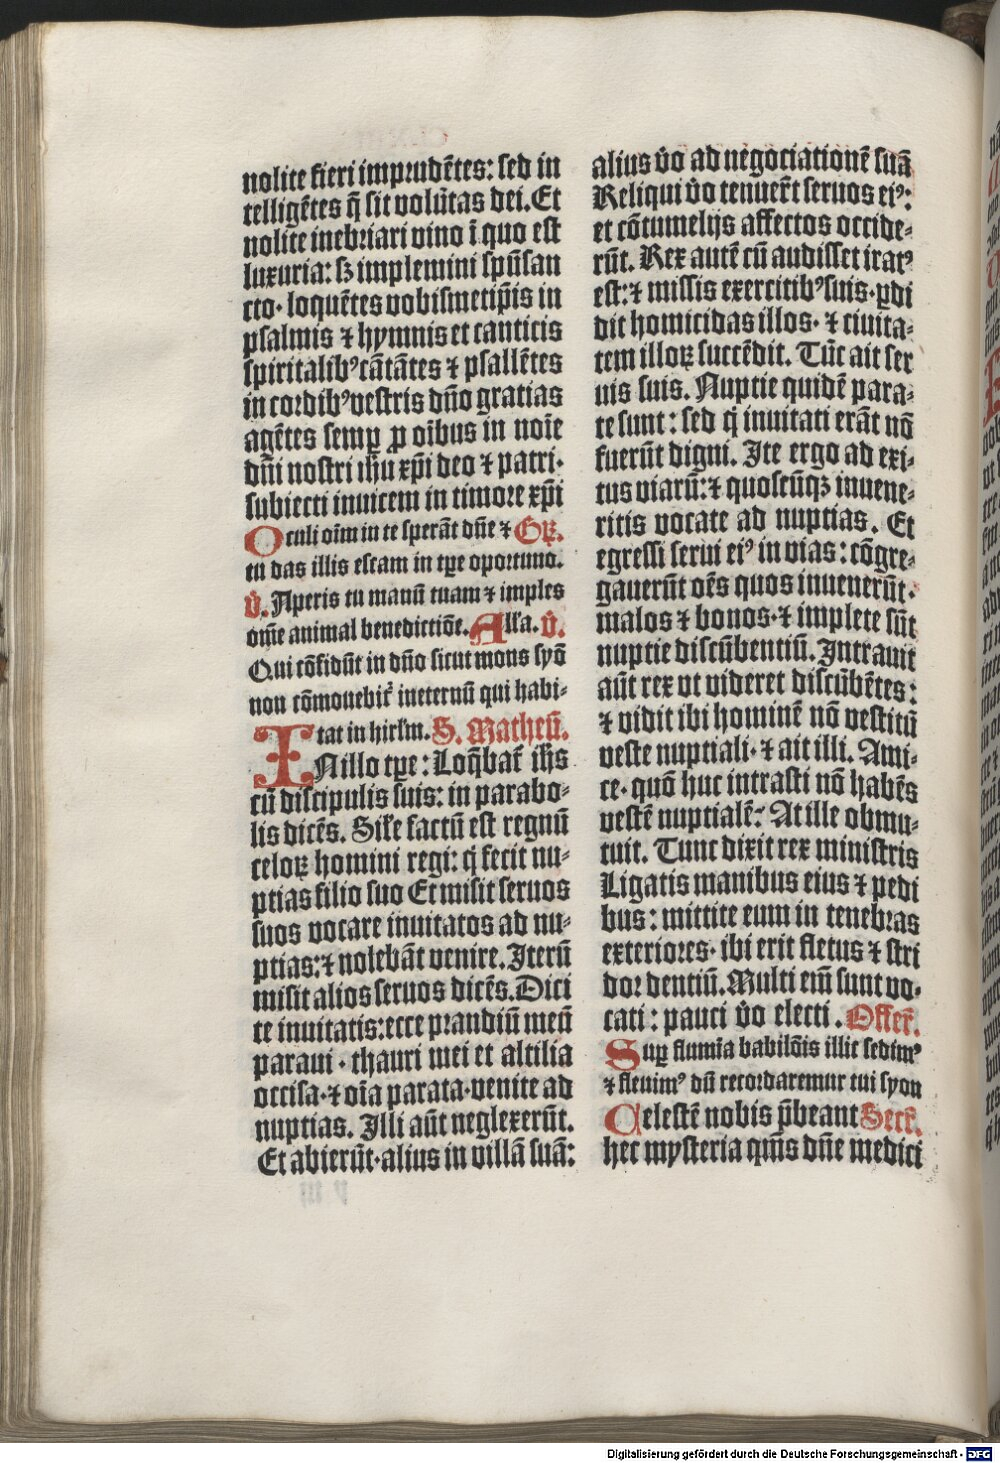 nolite fieri imprudētes: sed in
telligētes q̄ sit volūtas dei. Et
nolite inebriari vino ī quo est
luxuria: sꝫ implemini spūsan
cto· loquētes vobismetip̄is in
psalmis ⁊ hymnis et canticis
spiritalibꝰ cātātes ⁊ psallētes
in cordibꝰ vestris dn̄o gratias
agētes semꝑ ꝓ oībus in noīe
dn̄i nostri ih̄u xp̄i deo ⁊ patri·
subiecti inuicem in timore xp̄i
Oculi oīm in te sperāt dn̄e ⁊ Gꝛ̄.
tu das illis escam in tp̄e oportuno.
v̄. Aperis tu manū tuam ⁊ imples
om̄e animal benedictiōe. Alla. v̄.
Qui cōfidūt in dn̄o sicut mons syō
non cōmouebit᷑ ineternū qui habi-
tat in hirlm̄. S. Matheū.
IN illo tꝑe: Loq̄bat᷑ ih̄s
cū discipulis suis: in parabo-
lis dicēs. Sil̄e factū est regnū
celoꝝ homini regi: q̇ fecit nu-
ptias filio suo Et misit seruos
suos vocare inuitatos ad nu-
ptias: ⁊ nolebāt venire. Iterū
misit alios seruos dicēs. Dici
te inuitatis: ecce prandiū meū
paraui · thauri mei et altilia
occisa· ⁊ oīa parata· venite ad
nuptias. Illi aūt neglexerūt.
Et abierūt· alius in villā suā:
alius v̄o ad negociationē suā
Reliqui v̄o tenuer̄t seruos eiꝰ:
et cōtumelijs affectos occide-
rūt. Rex autē cū audisset iratꝰ
est: ⁊ missis exercitibꝰ suis· ꝑdi
dit homicidas illos· ⁊ ciuita-
tem illoꝝ succēdit. Tūc ait ser
uis suis. Nuptie quidē para-
te sunt : sed q̇ inuitati erāt nō
fuerūt digni. Ite ergo ad exi-
tus viarū: ⁊ quoscūqꝫ inuene-
ritis vocate ad nuptias. Et
egressi serui eiꝰ in vias : cōgre-
gauerūt oēs quos inuenerūt·
malos ⁊ bonos· ⁊ implete sūt
nuptie discūbentiū. Intrauit
aūt rex vt videret discūbētes:
⁊ vidit ibi hominē nō vestitū
veste nuptiali· ⁊ ait illi. Ami-
ce· quō huc intrasti nō habēs
vestē nuptialē? At ille obmu-
tuit. Tunc dixit rex ministris
Ligatis manibus eius ⁊ pedi
bus : mittite eum in tenebras
exteriores· ibi erit fletus ⁊ stri
dor dentiū. Multi em̄ sunt vo-
cati : pauci v̄o electi . Offer̄.
Suꝑ flumīa babilōis illic sedimꝰ
⁊ fleuimꝰ dū recordaremur tui syon
Celestē nobis p̄beant Secr̄.
hec mysteria qm̄s dn̄e medici
Digitalisierung gefördert durch die Deutsche Forschungsgemeinschaft - DFG